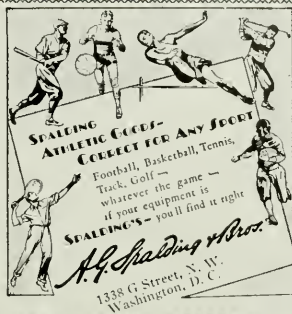 SPALDING
ATHLETIC GOODS–
CORRECT FOR ANY SPORT
Football, Basketball, Tennis,
Track, Golf —
whatever the game —
if your equipment is
SPALDING'S – you'll find it right
A.G. Spalding & Bros.
1338 G Street, N. W.
Washington, D. C.